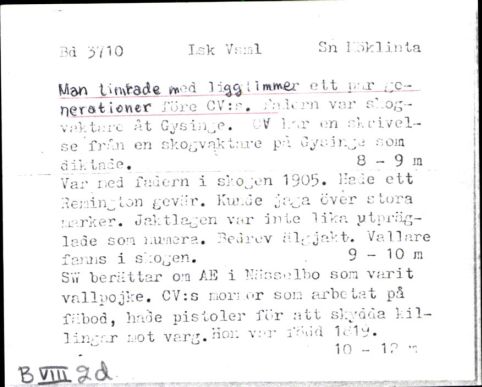 Bd 3710 Lsk Vsml Sn Möklinta
Man timrade med liggtimmer ett par ge-
nerationer före CV:s. Fadern var skog-
vaktare åt Gysinge. CV har en skrivel-
se från en skogvaktare på Gysinge som
diktade. 8 - 9 m
Var med fadern i skogen 1905. Hade ett
Remington gevär. Kunde jaga över stora
marker. Jaktlagen var inte lika utpräg-
lade som numera. Bedrev älgjakt. Vallare
fanns i skogen. 9 - 10 m
SW berättar om AE i Nässelbo som varit
vallpojke. CV:s mormor som arbetat på
fäbod, hade pistoler för att skydda kil-
lingar mot varg. Hon var född 1819.
10 - 12 m
B VIII 2d